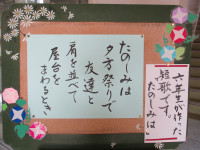 六年生が作った
短歌です。
たのしみは
たのしみは
夕方祭りで
友達と
肩を並べて
屋台を
まわるとき